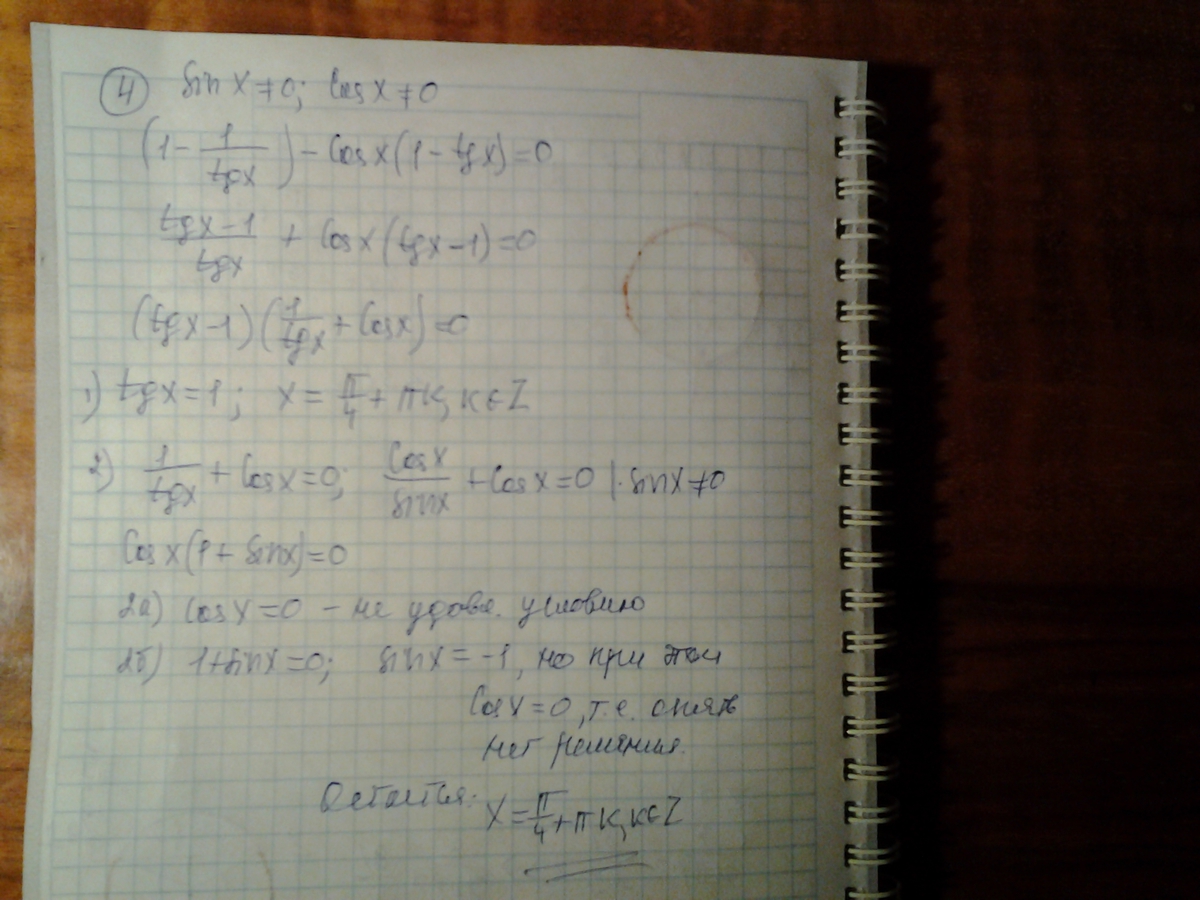 4 sin x ≠ 0; cos x ≠ 0
(1 - 1/tgx) - cos x (1 - tgx) = 0
tgx - 1/tgx + cos x (tgx - 1) = 0
(tgx - 1)(1/tgx + cosx) = 0
1) tgx = 1; x = π/4 + πк, к∈Z
2) 1/tgx + cos x = 0; cosx/sinx + cos x = 0 |· sinx ≠ 0
cos x (1 + sinx) = 0
2а) cos x = 0 - не удовл. условию
2б) 1 + sinx = 0; sinx = -1, но при этом
cos x = 0, т.е. опять
нет решения.
Остаётся: x = π/4 + πк, к∈Z